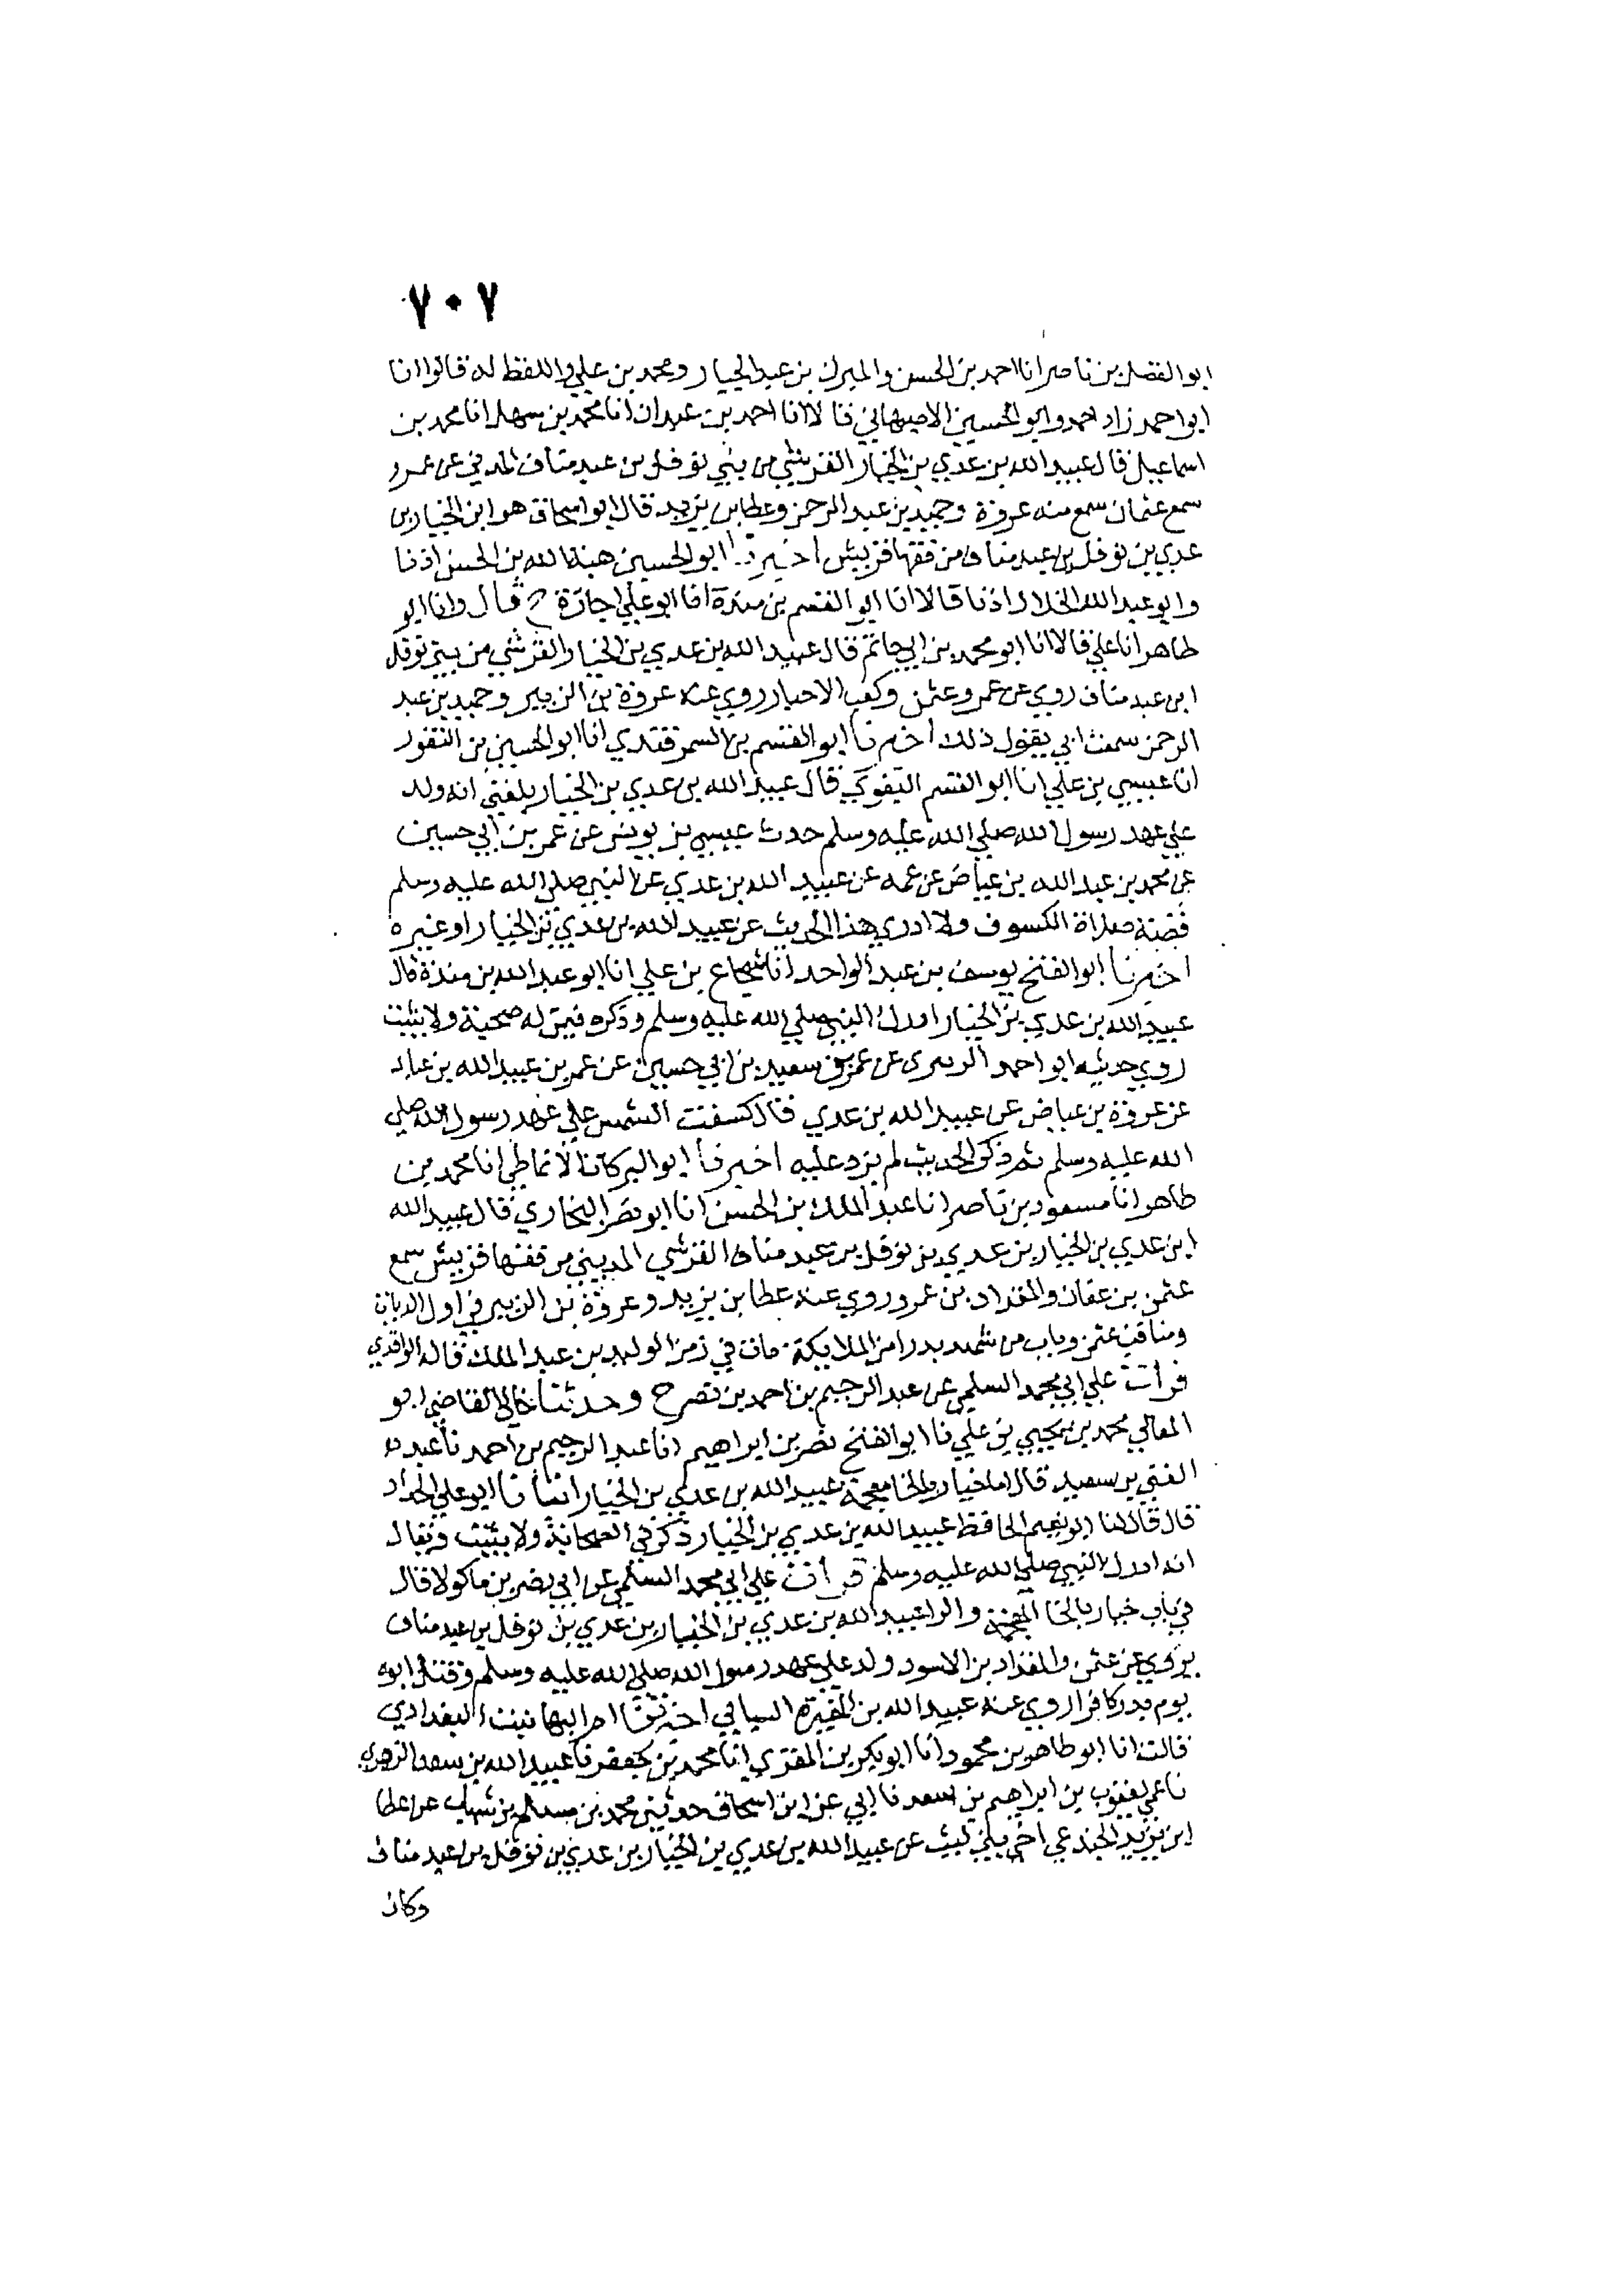 ٧٠٧
ابو الفضل بن ناصر انا احمد بن الحسن والمبرك بن عبد الجبار ومحمد بن علي واللفظ له قالوا انا
ابو احمد زاد احمد وابو الحسين الاصبهاني قالا انا احمد بن عبدان انا محمد بن سهل انا محمد بن
اسماعيل قال عبيد الله بن عدي بن الخيار القرشي من بني نوفل بن عبد مناف المدني عن عمر و
سمع عثمان سمع منه عروة وحميد بن عبد الرحمن وعطا بن يزيد قال ابو اسحاق هو ابن الخيار بن
عدي بن نوفل بن عبد مناف من فقها قريش اخبرنا ابو الحسين هبة الله بن الحسن اذنا
وابو عبد الله الخلال اذنا قالا انا ابو القسم بن مندة انا ابو علي اجازة ح قال وانا ابو
طاهر انا علي قالا انا ابو محمد بن ابي حاتم قال عبيد الله بن عدي بن الخيار القرشي من بني نوفل
ابن عبد مناف روي عن عمر وعثمن وكعب الاحبار روي عنه عروة بن الزبير وحميد بن عبد
الرحمن سمعت ابي يقول ذلك اخبرنا ابو القسم بن السمرقندي انا ابو الحسين بن النقور
انا عيسي بن علي انا ابو القسم البغوي قال عبيد الله بن عدي بن الخيار بلغني انه ولد
علي عهد رسول الله صلي الله عليه وسلم حدث عيسي بن يونس عن عمر بن ابي حسين
عن محمد بن عبد الله بن عياض عن عمه عن عبيد الله بن عدي عن النبي صلي الله عليه وسلم
قصة صلاة الكسوف ولا ادري هذا الحديث عن عبيد الله بن عدي بن الخيار او غيره
اخبرنا ابو الفتح يوسف بن عبد الواحد انا شجاع بن علي انا ابو عبد الله بن مندة قال
عبيد الله بن عدي بن الخيار ادرك النبي صلي الله عليه وسلم وذكره فيمن له صحبة ولا يثبت
روي حديثه ابو احمد الزبيري عن عمر بن سعيد بن ابي حسين عن عمر بن عبيد الله بن عباد
عن عروة بن عياض عن عبيد الله بن عدي قال كسفت الشمس علي عهد رسول الله صلي
الله عليه وسلم ثم ذكر الحديث لم يزد عليه اخبرنا ابو البركات الانماطي انا محمد بن
طاهر انا مسعود بن ناصر انا عبد الملك بن الحسن انا ابو نصر البخاري قال عبيد الله
ابن عدي بن الخيار بن عدي بن نوفل بن عبد مناف القرشي المديني من فقها قريش سمع
عثمن بن عفان والمقداد بن عمرو روي عنه عطا بن يزيد وعروة بن الزبير في اول الديات
ومناقب عثمن وباب من شهد بدرا من الملايكة مات في زمن الوليد بن عبد الملك قاله الواقدي
قرات علي ابي محمد السلمي عن عبد الرحيم بن احمد بن نصر ح وحدثنا خالي القاضي ابو
المعالي محمد بن يحيي بن علي نا ابو الفتح نصر بن ابراهيم انا عبد الرحيم بن احمد نا عبد
الغني بن سعيد قال اما خيار بالخا معجمة عبيد الله بن عدي بن الخيار انبانا ابو علي الحداد
قال قال لنا ابو نعيم الحافظ عبيد الله بن عدي بن الخيار ذكر في الصحابة ولا يثبت ويقال
انه ادرك النبي صلي الله عليه وسلم قرات علي ابي محمد السلمي عن ابي نصر بن ماكولا قال
في باب خيار بالخا المعجمة والرا عبيد الله بن عدي بن الخيار بن عدي بن نوفل بن عبد مناف
يروي عن عثمن والمقداد بن الاسود ولد علي عهد رسول الله صلي الله عليه وسلم وقتل ابوه
يوم بدر كافرا روي عنه عبيد الله بن المغيرة السبائي اخبرتنا ام البها بنت البغدادي
قالت انا ابو طاهر بن محمود انا ابو بكر بن المقري انا محمد بن جعفر نا عبيد الله بن سعد الزهري
نا عمي يعقوب بن ابراهيم بن سعد نا ابي عن ابن اسحاق حدثني محمد بن مسلم بن شهاب عن عطا
ابن يزيد الجندعي اخي بني ليث عن عبيد الله بن عدي بن الخيار بن عدي بن نوفل بن عبد مناف
وكان